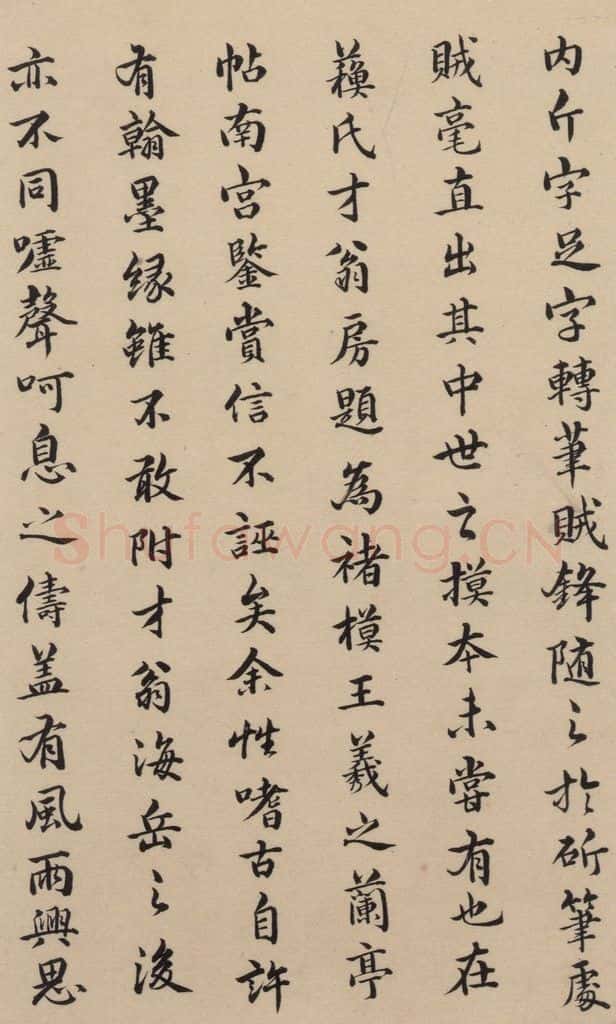 内斤字足字轉筆賊鋒随之於斫筆處
賊毫直出其中世之摸本未嘗有也在
蘓氏才翁房題為褚模王羲之蘭亭
帖南宫鑒賞信不誣矣余性嗜古自許
有翰墨緣雖不敢附才翁海岳之後
亦不同嘘聲呵息之儔盖有風雨興思
Shufawang.CN